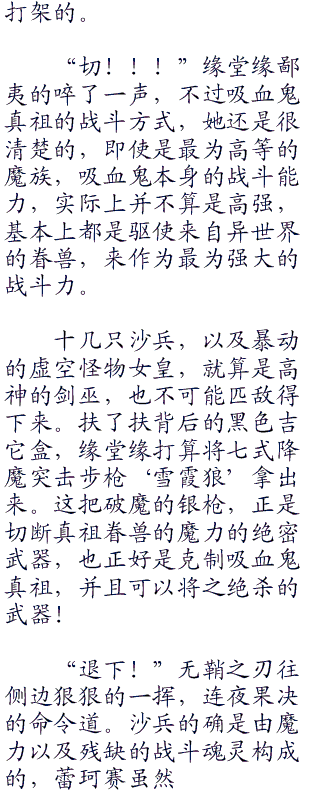 打架的。
“切！！！”缘堂缘鄙
夷的啐了一声，不过吸血鬼
真祖的战斗方式，她还是很
清楚的，即使是最为高等的
魔族，吸血鬼本身的战斗能
力，实际上并不算是高强，
基本上都是驱使来自异世界
的眷兽，来作为最为强大的
战斗力。
十几只沙兵，以及暴动
的虚空怪物女皇，就算是高
神的剑巫，也不可能匹敌得
下来。扶了扶背后的黑色吉
它盒，缘堂缘打算将七式降
魔突击步枪‘雪霞狼’拿出
来。这把破魔的银枪，正是
切断真祖眷兽的魔力的绝密
武器，也正好是克制吸血鬼
真祖，并且可以将之绝杀的
武器！
“退下！”无鞘之刃往
侧边狠狠的一挥，连夜果决
的命令道。沙兵的确是由魔
力以及残缺的战斗魂灵构成
的，蕾珂赛虽然